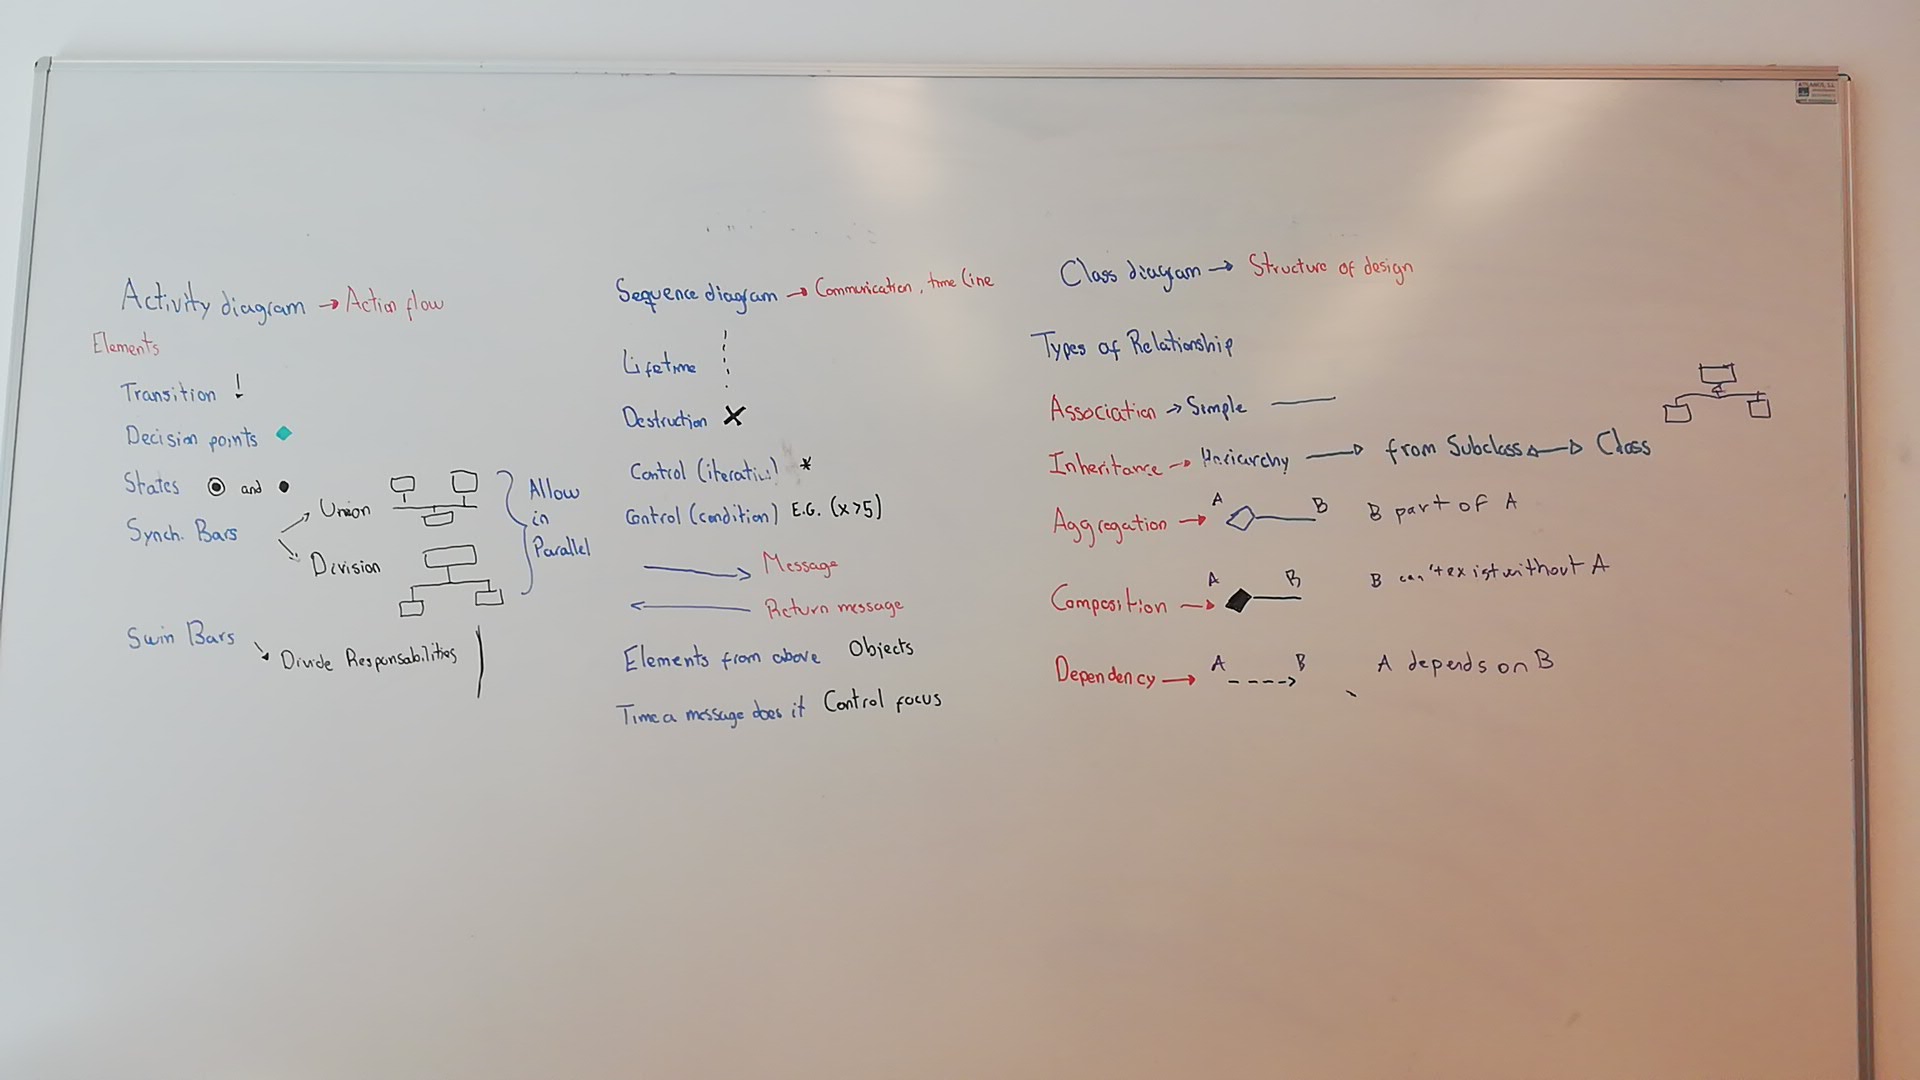 Activity diagram → Action flow
Elements
Transition
Decision points
States and
Synch. Bars
Union
Division
Allow
in
Parallel
Swin Bars
Divide Responsabilities
Sequence diagram → Communication, time line
Lifetime
Destruction X
Control (iterativ) *
Control (condition) E.G. (x>5)
Message
Return message
Elements from above Objects
Time a message does it Control focus
Class diagram → Structure of design
Types of Relationship
Association → Simple
Inheritance → Heriarchy from Subclass Class
Aggregation → A B B part of A
Composition → A B B can't exist without A
Dependency → A B A depends on B